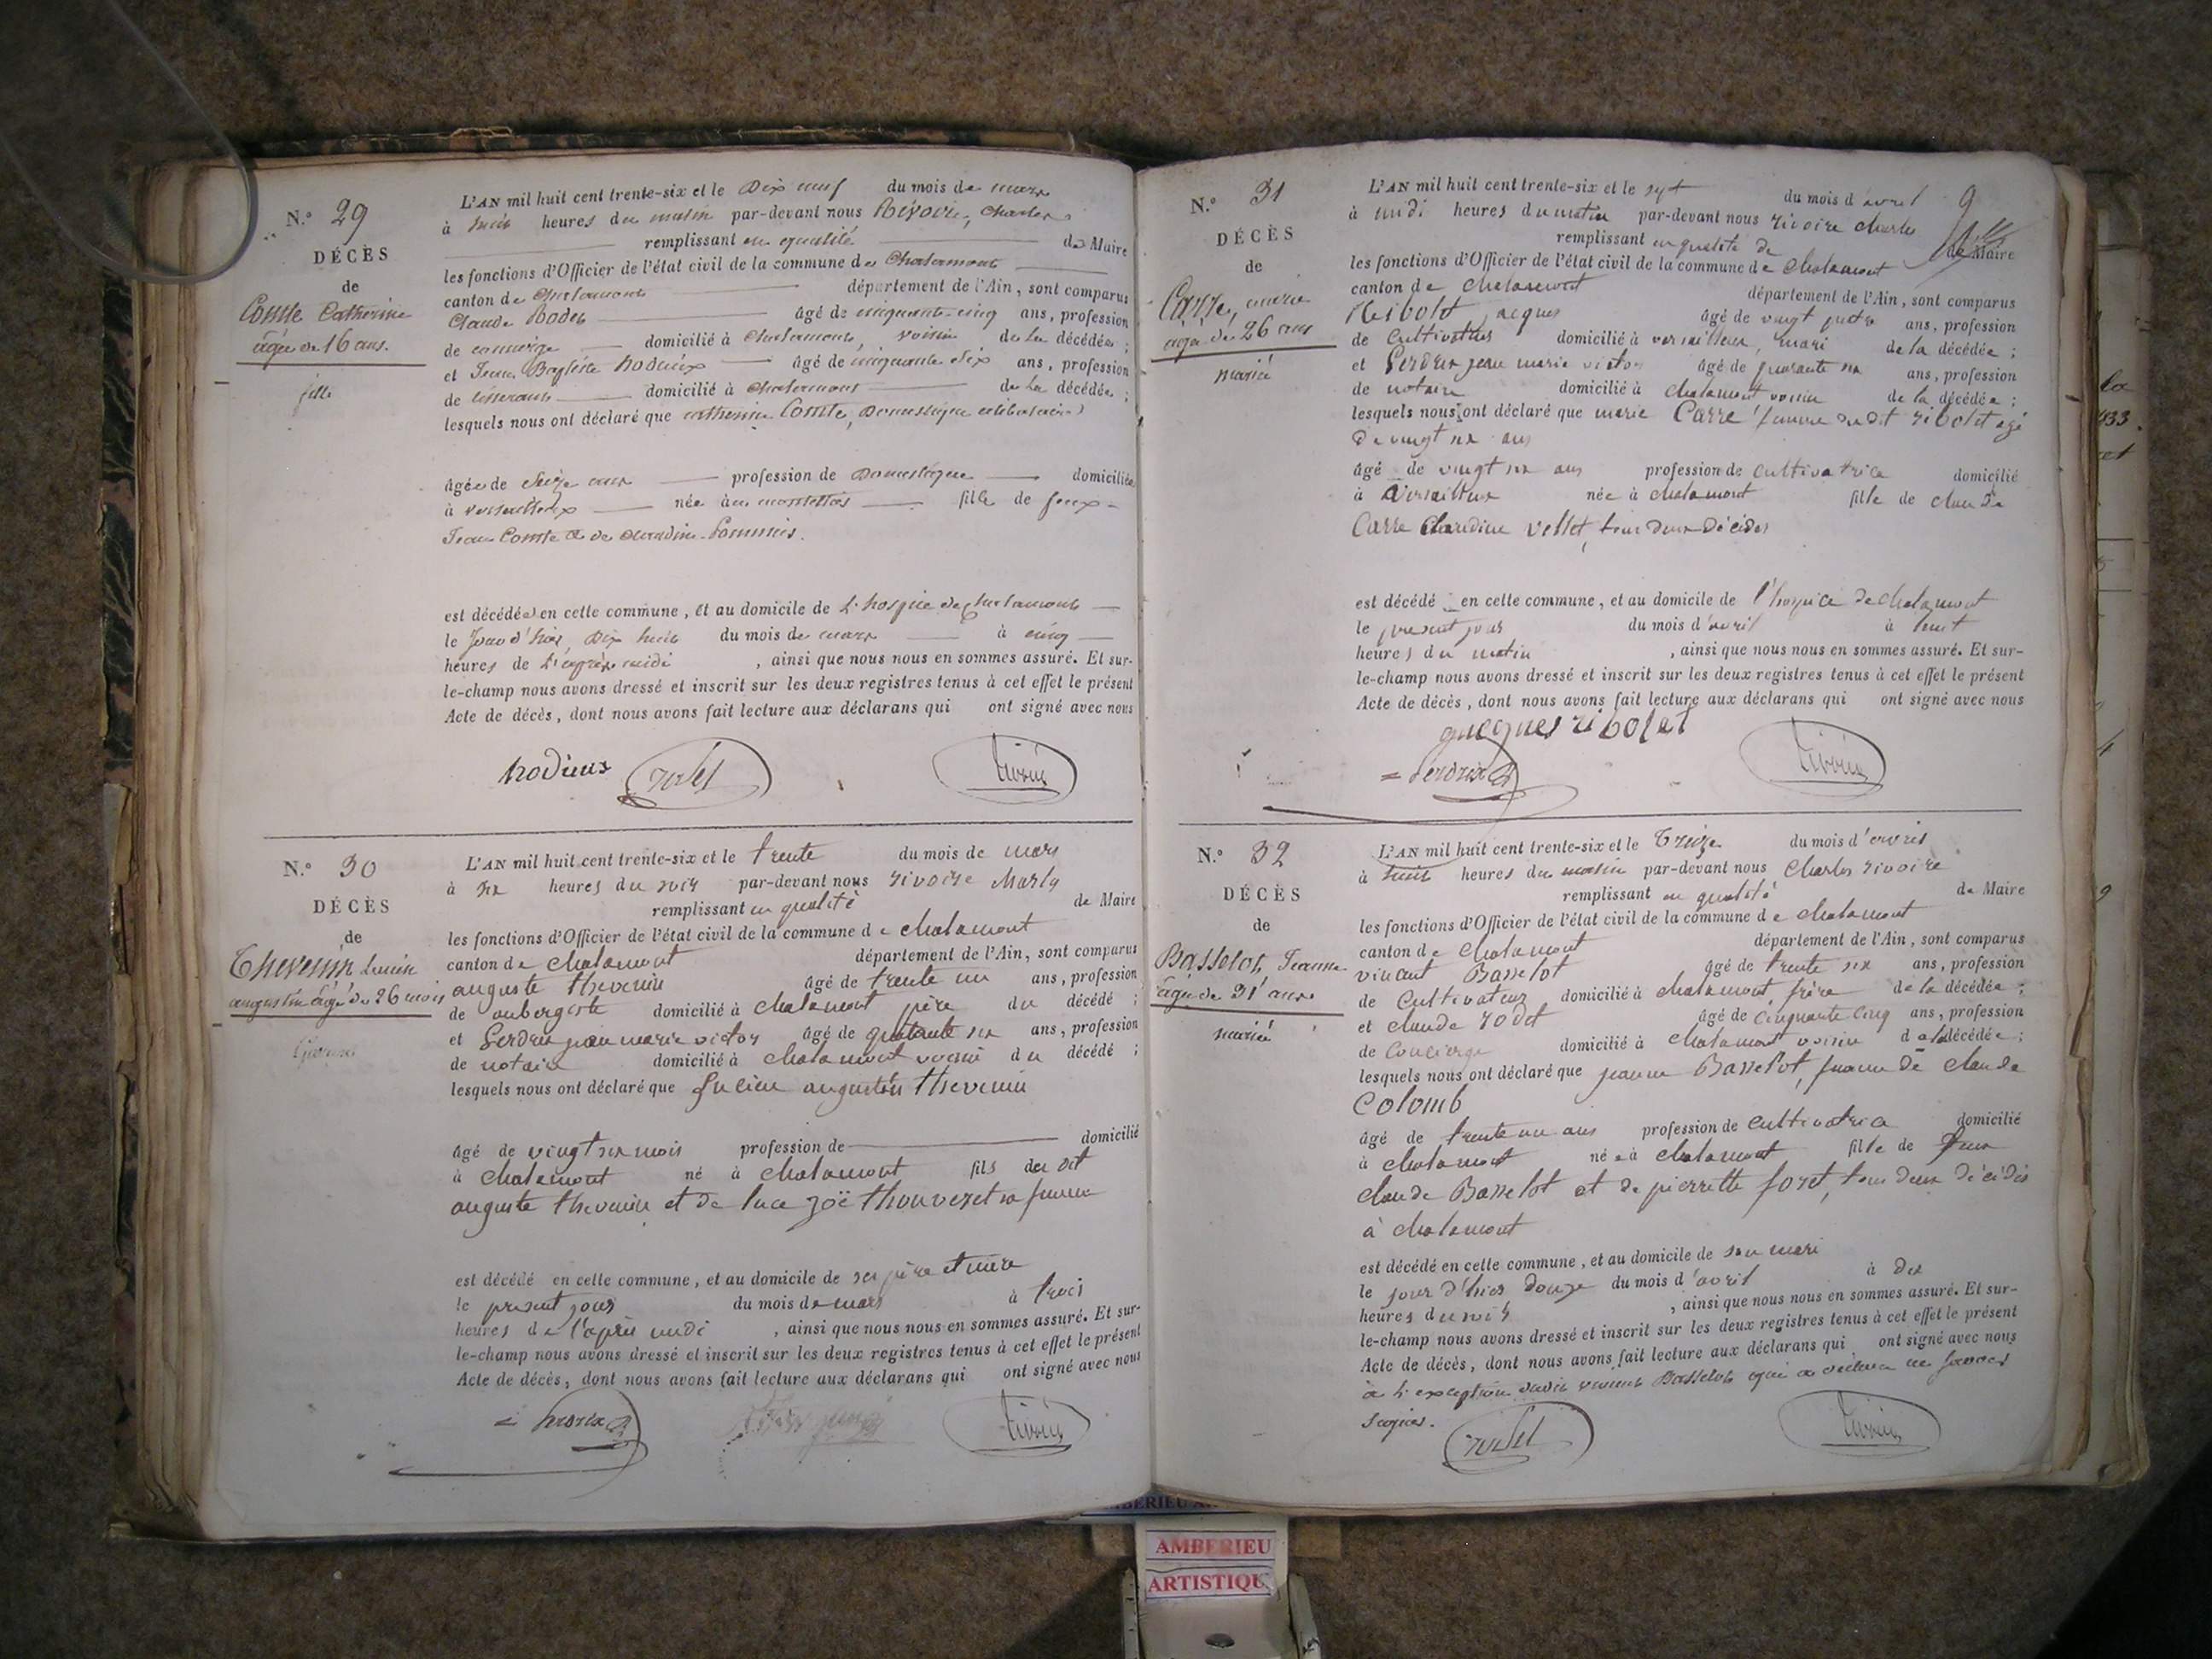 N.° 29
DÉCÈS
de
Comte Catherine
âgée de 16 ans.
fille
L'AN mil huit cent trente-six et le Dix neuf du mois de mars
à huit heures du matin par-devant nous Rivoire, Charles
remplissant en qualité de Maire
les fonctions d'Officier de l'état civil de la commune de Chalamont
canton de Chalamont département de l'Ain, sont comparus
Claude Rodet âgé de cinquante-cinq ans, profession
de concierge domicilié à Chalamont, voisin de la décédée ;
et Jean Baptiste hodieux âgé de cinquante six ans, profession
de tisserand domicilié à Chalamont de la décédée ;
lesquels nous ont déclaré que catherine Comte, Domestique célibataire
âgée de Seize ans profession de Domestique domiciliée
à versailleux née à fille de feux
Jean Comte & de
est décédée en cette commune, et au domicile de L'hospice de Chalamont
le Jour d'hier, Dix huit du mois de mars à cinq
heures de L'après midi , ainsi que nous nous en sommes assuré. Et sur-
le-champ nous avons dressé et inscrit sur les deux registres tenus à cet effet le présent
Acte de décès, dont nous avons fait lecture aux déclarans qui ont signé avec nous
hodieux rodet Rivoire
N.° 30
DÉCÈS
de
Thevenin Lucien
augustin âgé de 26 mois
Garçon
L'AN mil huit cent trente-six et le trente du mois de mars
à six heures du soir par-devant nous rivoire Charles
remplissant en qualité de Maire
les fonctions d'Officier de l'état civil de la commune de chalamont
canton de chalamont département de l'Ain, sont comparus
auguste thevenin âgé de trente un ans, profession
de aubergiste domicilié à chalamont père du décédé ;
et Perdrix jean marie victor âgé de quarante six ans, profession
de notaire domicilié à chalamont voisin du décédé ;
lesquels nous ont déclaré que Lucien augustin thevenin
âgé de vingt six mois profession de domicilié
à chalamont né à chalamont fils du dit
auguste thevenin et de luce zoë thouveret sa femme
est décédé en cette commune, et au domicile de ses père et mère
le present jour du mois de mars à trois
heures de l'après midi , ainsi que nous nous en sommes assuré. Et sur-
le-champ nous avons dressé et inscrit sur les deux registres tenus à cet effet le présent
Acte de décès, dont nous avons fait lecture aux déclarans qui ont signé avec nous
Perdrix Rivoire
9
N.° 31
DÉCÈS
de
Carre, marie
agée de 26 ans
mariée
L'AN mil huit cent trente-six et le sept du mois d'avril
à midi heures du matin par-devant nous rivoire charles
remplissant en qualité de de Maire
les fonctions d'Officier de l'état civil de la commune de chalamont
canton de chalamont département de l'Ain, sont comparus
Ribolet jacques âgé de vingt quatre ans, profession
de cultivateur domicilié à versailleux, mari de la décédée ;
et Perdrix jean marie victor âgé de quarante six ans, profession
de notaire domicilié à chalamont voisin de la décédée ;
lesquels nous ont déclaré que marie Carre femme du dit ribolet agé
de vingt six ans
âgé de vingt six ans profession de cultivatrice domicilié
à versailleux née à chalamont fille de claude
Carre Claudine vellet, tous deux décédés
est décédé en cette commune, et au domicile de l'hospice de chalamont
le present jour du mois d'avril à huit
heures du matin , ainsi que nous nous en sommes assuré. Et sur-
le-champ nous avons dressé et inscrit sur les deux registres tenus à cet effet le présent
Acte de décès, dont nous avons fait lecture aux déclarans qui ont signé avec nous
ribolet
Perdrix Rivoire
N.° 32
DÉCÈS
de
Basselot, Jeanne
âgée de 31 ans
mariée
L'AN mil huit cent trente-six et le treize du mois d'avril
à huit heures du matin par-devant nous Charles rivoire
remplissant en qualité de Maire
les fonctions d'Officier de l'état civil de la commune de chalamont
canton de chalamont département de l'Ain, sont comparus
vincent Basselot âgé de trente six ans, profession
de cultivateur domicilié à chalamont, frère de la décédée ;
et claude rodet âgé de cinquante cinq ans, profession
de concierge domicilié à chalamont voisin de la décédée ;
lesquels nous ont déclaré que jeanne Basselot, femme de claude
colomb
âgé de trente un ans profession de cultivatrice domicilié
à chalamont née à chalamont fille de feux
claude Basselot et de pierrette foret, tous deux décédés
à chalamont
est décédé en cette commune, et au domicile de son mari
le jour d'hier douze du mois d'avril à dix
heures du soir , ainsi que nous nous en sommes assuré. Et sur-
le-champ nous avons dressé et inscrit sur les deux registres tenus à cet effet le présent
Acte de décès, dont nous avons fait lecture aux déclarans qui ont signé avec nous
à l'exception dudit vincent Basselot qui a déclaré ne savoir
signer.
rodet Rivoire
AMBERIEU
ARTISTIQUE